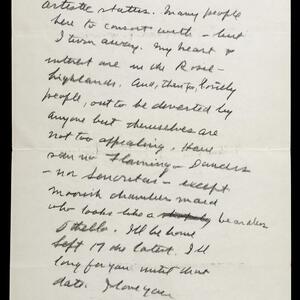 artistic status. Many people
here to consort with – but
I turn away. My heart &
interest are in the Rose-
highlands. And, then too, lonely
people, out to be diverted by
anyone but themselves are
not too appealing. Have
saw no Flaming – Dancers
– nor Senoritas – except
moorish chamber maid
who looks like a beardless
Othello. I'll be home
Sept 19 the latest. I'll
long for you until that
date. I love you